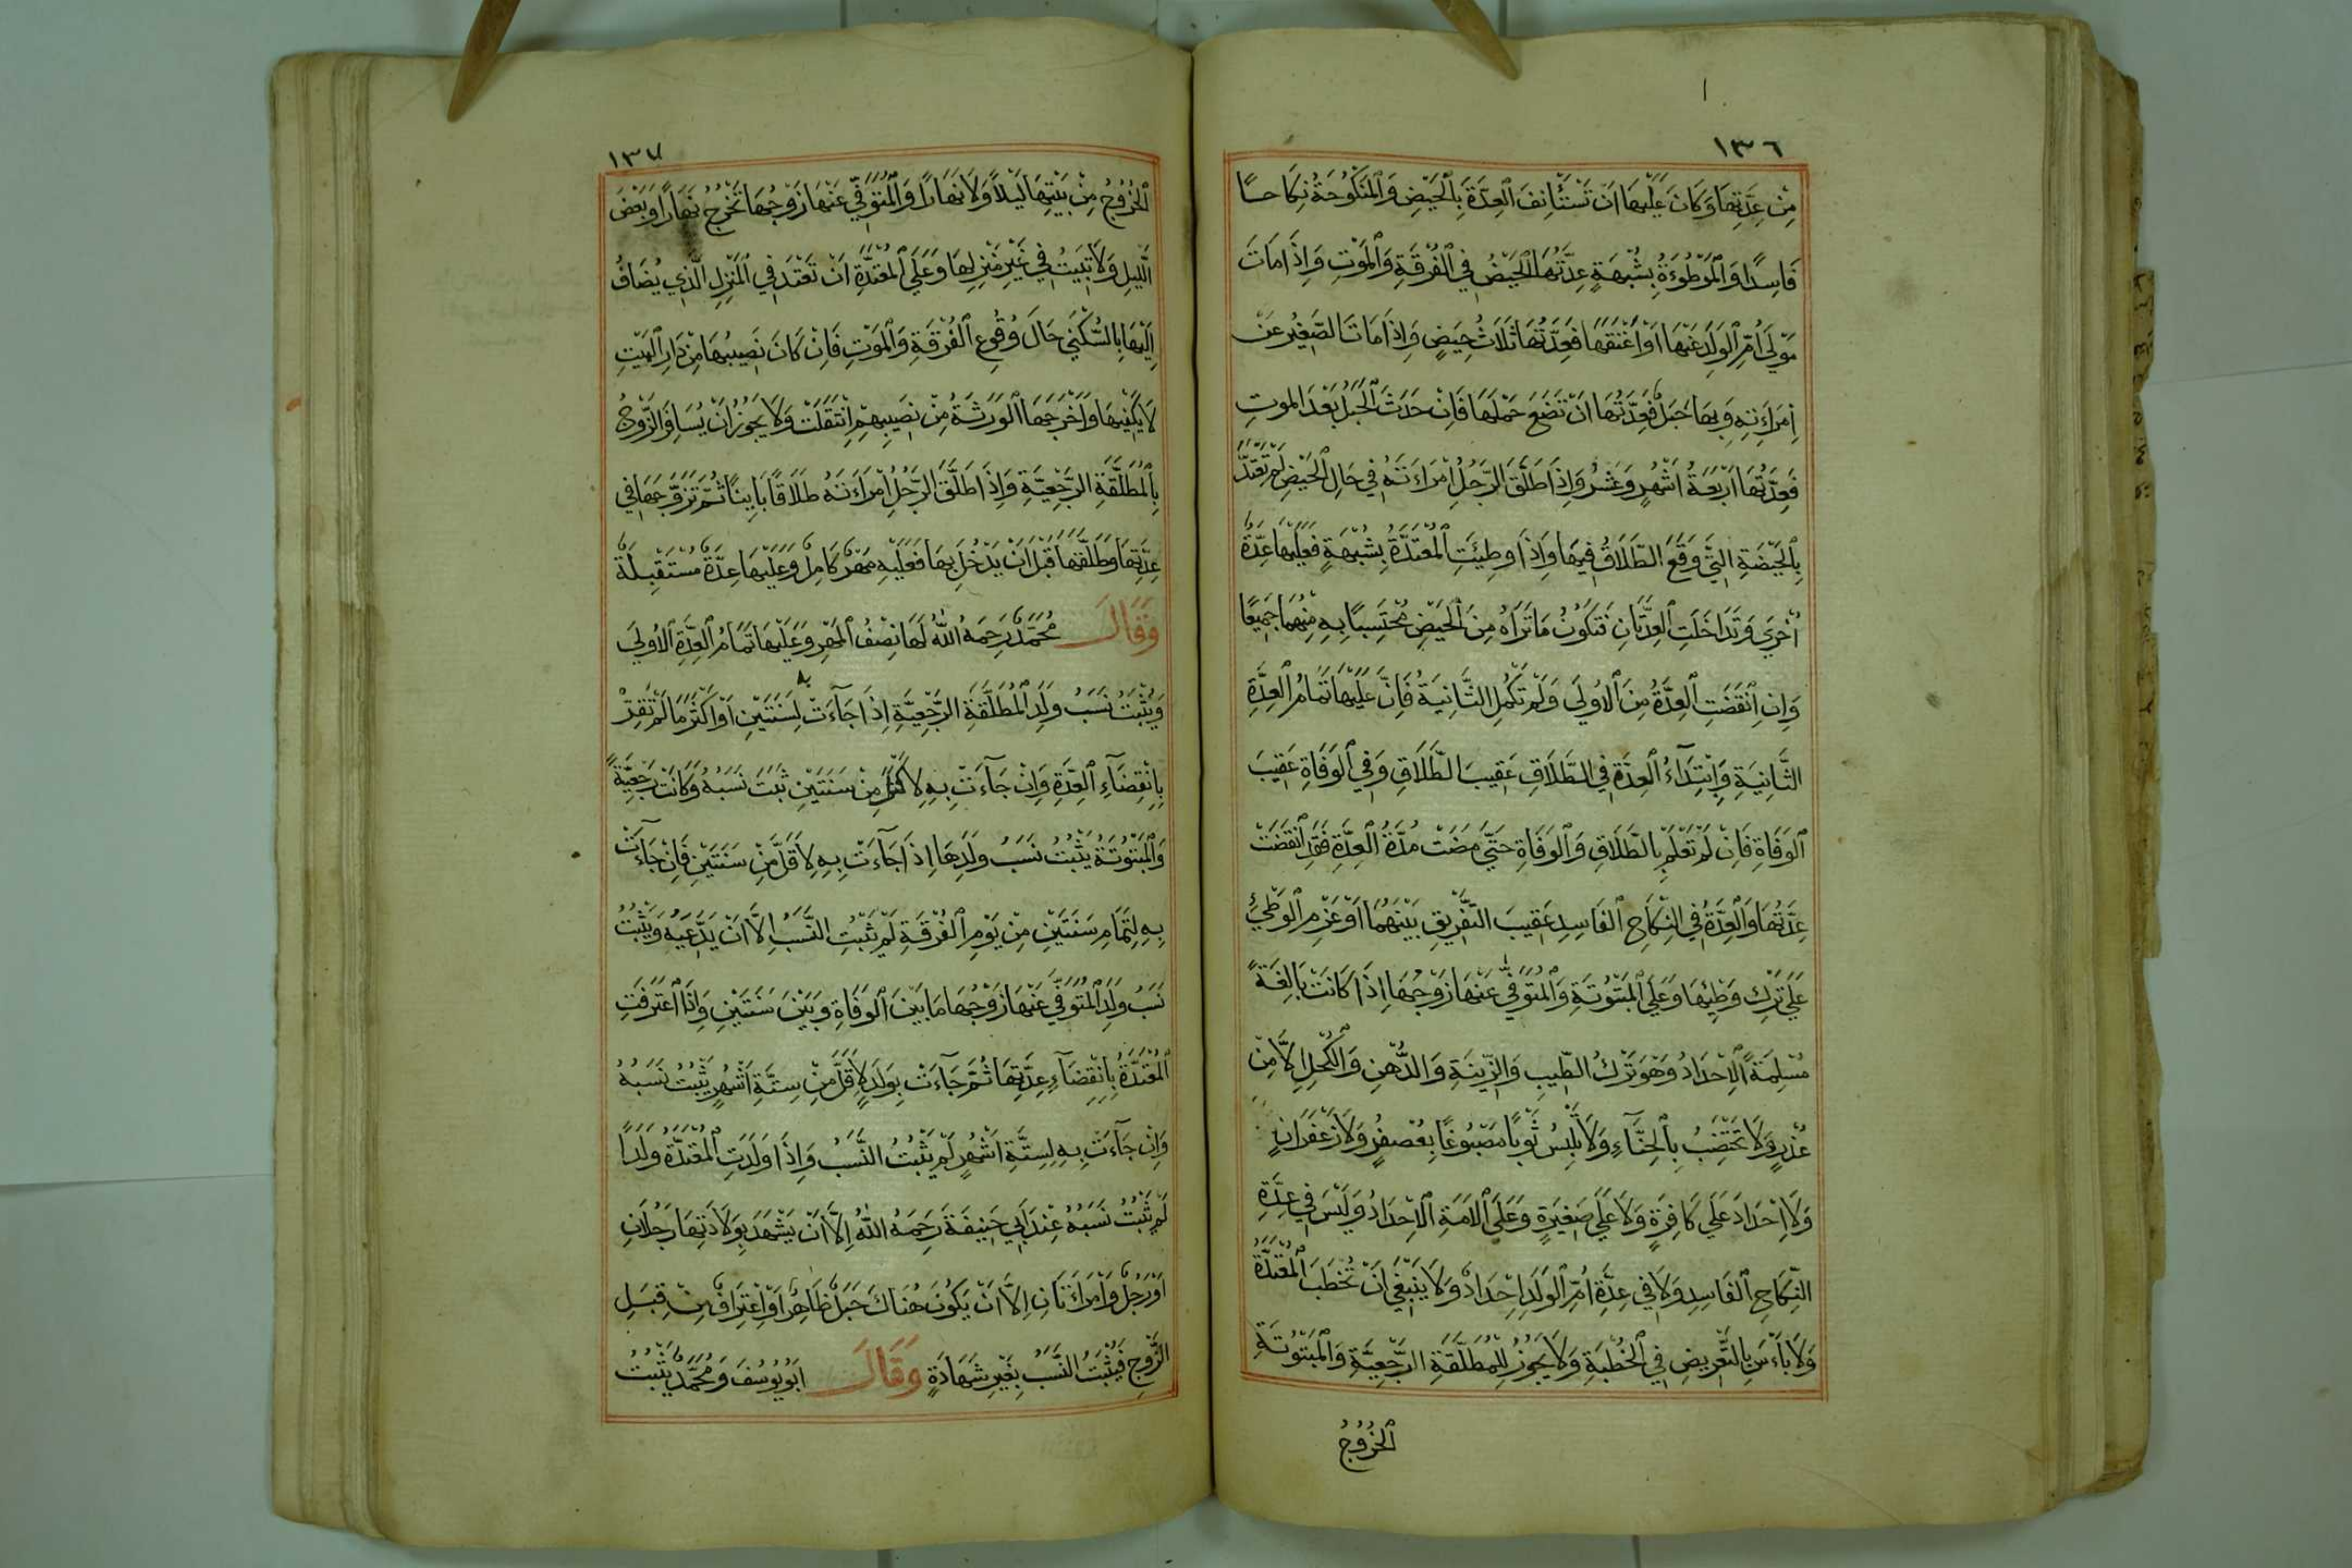 ١٣٦
مِنْ عِدَّتِهَا وَكَانَ عَلَيْهَا اَنْ تَسْتَأْنِفَ الْعِدَّةَ بِالْحَيْضِ وَالْمَنْكُوحَةُ نِكَاحًا
فَاسِدًا وَالْمَوْطُوءَةُ بِشُبْهَةٍ عِدَّتُهَا الْحَيْضُ فِي الْفُرْقَةِ وَالْمَوْتِ وَاِذَا مَاتَ
مَوْلَى اُمِّ الْوَلَدِ عَنْهَا اَوْ اَعْتَقَهَا فَعِدَّتُهَا ثَلَاثُ حِيَضٍ وَاِذَا مَاتَ الصَّغِيْرُ عَنْ
اِمْرَاَتِهِ وَبِهَا حَبَلٌ فَعِدَّتُهَا اَنْ تَضَعَ حَمْلَهَا فَاِنْ حَدَثَ الْحَبَلُ بَعْدَ الْمَوْتِ
فَعِدَّتُهَا اَرْبَعَةُ اَشْهُرٍ وَعَشْرٌ وَاِذَا طَلَّقَ الرَّجُلُ امْرَاَتَهُ فِي حَالِ الْحَيْضِ لَمْ تَعْتَدَّ
بِالْحَيْضَةِ الَّتِي وَقَعَ الطَّلَاقُ فِيهَا وَاِذَا وُطِئَتِ الْمُعْتَدَّةُ بِشُبْهَةٍ فَعَلَيْهَا عِدَّةٌ
اُخْرَى وَتَدَاخَلَتِ الْعِدَّتَانِ فَتَكُوْنُ مَا تَرَاهُ مِنَ الْحَيْضِ مُحْتَسَبًا بِهِ مِنْهُمَا جَمِيْعًا
وَاِنِ انْقَضَتِ الْعِدَّةُ مِنَ الْاُولَى وَلَمْ تَكْمُلِ الثَّانِيَةُ فَاِنَّ عَلَيْهَا تَمَامُ الْعِدَّةِ
الثَّانِيَةِ وَابْتِدَآءُ الْعِدَّةِ فِي الطَّلَاقِ عَقِيْبَ الطَّلَاقِ وَفِي الْوَفَاةِ عَقِيْبَ
الْوَفَاةِ فَاِنْ لَمْ تَعْلَمْ بِالطَّلَاقِ وَالْوَفَاةِ حَتَّى مَضَتْ مُدَّةُ الْعِدَّةِ فَقَدِ انْقَضَتْ
عِدَّتُهَا وَالْعِدَّةُ فِي النِّكَاحِ الْفَاسِدِ عَقِيْبَ التَّفْرِيْقِ بَيْنَهُمَا اَوْ عَزْمِ الْوَطِئِ
عَلَى تَرْكِ وَطْئِهَا وَعَلَى الْمَبْتُوْتَةِ وَالْمُتَوَفَّى عَنْهَا زَوْجُهَا اِذَا كَانَتْ بَالِغَةً
مُسْلِمَةً الْاِحْدَادُ وَهُوَ تَرْكُ الطِّيْبِ وَالزِّيْنَةِ وَالدُّهْنِ وَالْكُحْلِ اِلَّا مِنْ
عُذْرٍ وَلَا تَخْتَضِبُ بِالْحِنَّاءِ وَلَا تَلْبِسُ ثَوْبًا مَصْبُوْغًا بِعُصْفُرٍ وَلَا زَعْفَرَانٍ
وَلَا اِحْدَادَ عَلَى كَافِرَةٍ وَلَا عَلَى صَغِيْرَةٍ وَعَلَى الْاَمَةِ الْاِحْدَادُ وَلَيْسَ فِي عِدَّةِ
النِّكَاحِ الْفَاسِدِ وَلَا فِي عِدَّةِ اُمِّ الْوَلَدِ اِحْدَادٌ وَلَا يَنْبَغِي اَنْ تُخْطَبَ الْمُعْتَدَّةُ
وَلَا بَاْسَ بِالتَّعْرِيْضِ فِي الْخُطْبَةِ وَلَا يَجُوْزُ لِلْمُطَلَّقَةِ الرَّجْعِيَّةِ وَالْمَبْتُوْتَةِ
الْخُرُوْجُ
١٣٧
الْخُرُوْجُ مِنْ بَيْتِهَا لَيْلًا وَلَا نَهَارًا وَالْمُتَوَفَّى عَنْهَا زَوْجُهَا تَخْرُجُ نَهَارًا وَبَعْضَ
الَّيْلِ وَلَا تَبِيْتُ فِي غَيْرِ مَنْزِلِهَا وَعَلَى الْمُعْتَدَّةِ اَنْ تَعْتَدَّ فِي الْمَنْزِلِ الَّذِي يُضَافُ
اِلَيْهَا بِالسُّكْنَى حَالَ وُقُوعِ الْفُرْقَةِ وَالْمَوْتِ فَاِنْ كَانَ نَصِيْبُهَا مِنْ دَارِ الْمَيِّتِ
لَا يَكْفِيْهَا وَاَخْرَجَهَا الْوَرَثَةُ مِنْ نَصِيْبِهِمْ اِنْتَقَلَتْ وَلَا يَجُوْزُ اَنْ يُسَافِرَ الزَّوْجُ
بِالْمُطَلَّقَةِ الرَّجْعِيَّةِ وَاِذَا طَلَّقَ الرَّجُلُ امْرَاَتَهُ طَلَاقًا بَايِنًا ثُمَّ تَزَوَّجَهَا فِي
عِدَّتِهَا وَطَلَّقَهَا قَبْلَ اَنْ يَدْخُلَ بِهَا فَعَلَيْهِ مَهْرٌ كَامِلٌ وَعَلَيْهَا عِدَّةٌ مُسْتَقْبِلَةٌ
وَقَالَ مُحَمَّدٌ رَحِمَهُ اللّٰهُ لَهَا نِصْفُ الْمَهْرِ وَعَلَيْهَا تَمَامُ الْعِدَّةِ الْاُولَى
وَيَثْبُتُ نَسَبُ وَلَدِ الْمُطَلَّقَةِ الرَّجْعِيَّةِ اِذَا جَآءَتْ لِسَنَتَيْنِ اَوْ اَكْثَرَ مَا لَمْ تُقِرَّ
بِانْقِضَآءِ الْعِدَّةِ وَاِنْ جَآءَتْ بِهِ لِاَكْثَرَ مِنْ سَنَتَيْنِ ثَبَتَ نَسَبُهُ وَكَانَتْ رَجْعِيَّةً
وَالْمَبْتُوْتَةُ يَثْبُتُ نَسَبُ وَلَدِهَا اِذَا جَآءَتْ بِهِ لِاَقَلَّ مِنْ سَنَتَيْنِ فَاِنْ جَآءَتْ
بِهِ لِتَمَامِ سَنَتَيْنِ مِنْ يَوْمِ الْفُرْقَةِ لَمْ يَثْبُتِ النَّسَبُ اِلَّا اَنْ يَدَّعِيَهُ وَيَثْبُتُ
نَسَبُ وَلَدِ الْمُتَوَفَّى عَنْهَا زَوْجُهَا مَا بَيْنَ الْوَفَاةِ وَبَيْنَ سَنَتَيْنِ وَاِذَا اعْتَرَفَتِ
الْمُعْتَدَّةُ بِانْقِضَآءِ عِدَّتِهَا ثُمَّ جَآءَتْ بِوَلَدٍ لِاَقَلَّ مِنْ سِتَّةِ اَشْهُرٍ يَثْبُتُ نَسَبُهُ
وَاِنْ جَآءَتْ بِهِ لِسِتَّةِ اَشْهُرٍ لَمْ يَثْبُتُ النَّسَبُ وَاِذَا وَلَدَتِ الْمُعْتَدَّةُ وَلَدًا
لَمْ يَثْبُتُ نَسَبُهُ عِنْدَ اَبِي حَنِيْفَةَ رَحِمَهُ اللّٰهُ اِلَّا اَنْ يَشْهَدَ بِوِلَادَتِهَا رَجُلَانِ
اَوْ رَجُلٌ وَامْرَاَتَانِ اِلَّا اَنْ يَكُوْنَ هُنَاكَ حَبَلٌ ظَاهِرٌ اَوْ اِعْتِرَافٌ مِنْ قِبَلِ
الزَّوْجِ فَيَثْبُتُ النَّسَبُ بِغَيْرِ شَهَادَةٍ وَقَالَ اَبُو يُوسُفَ وَمُحَمَّدٌ يَثْبُتُ